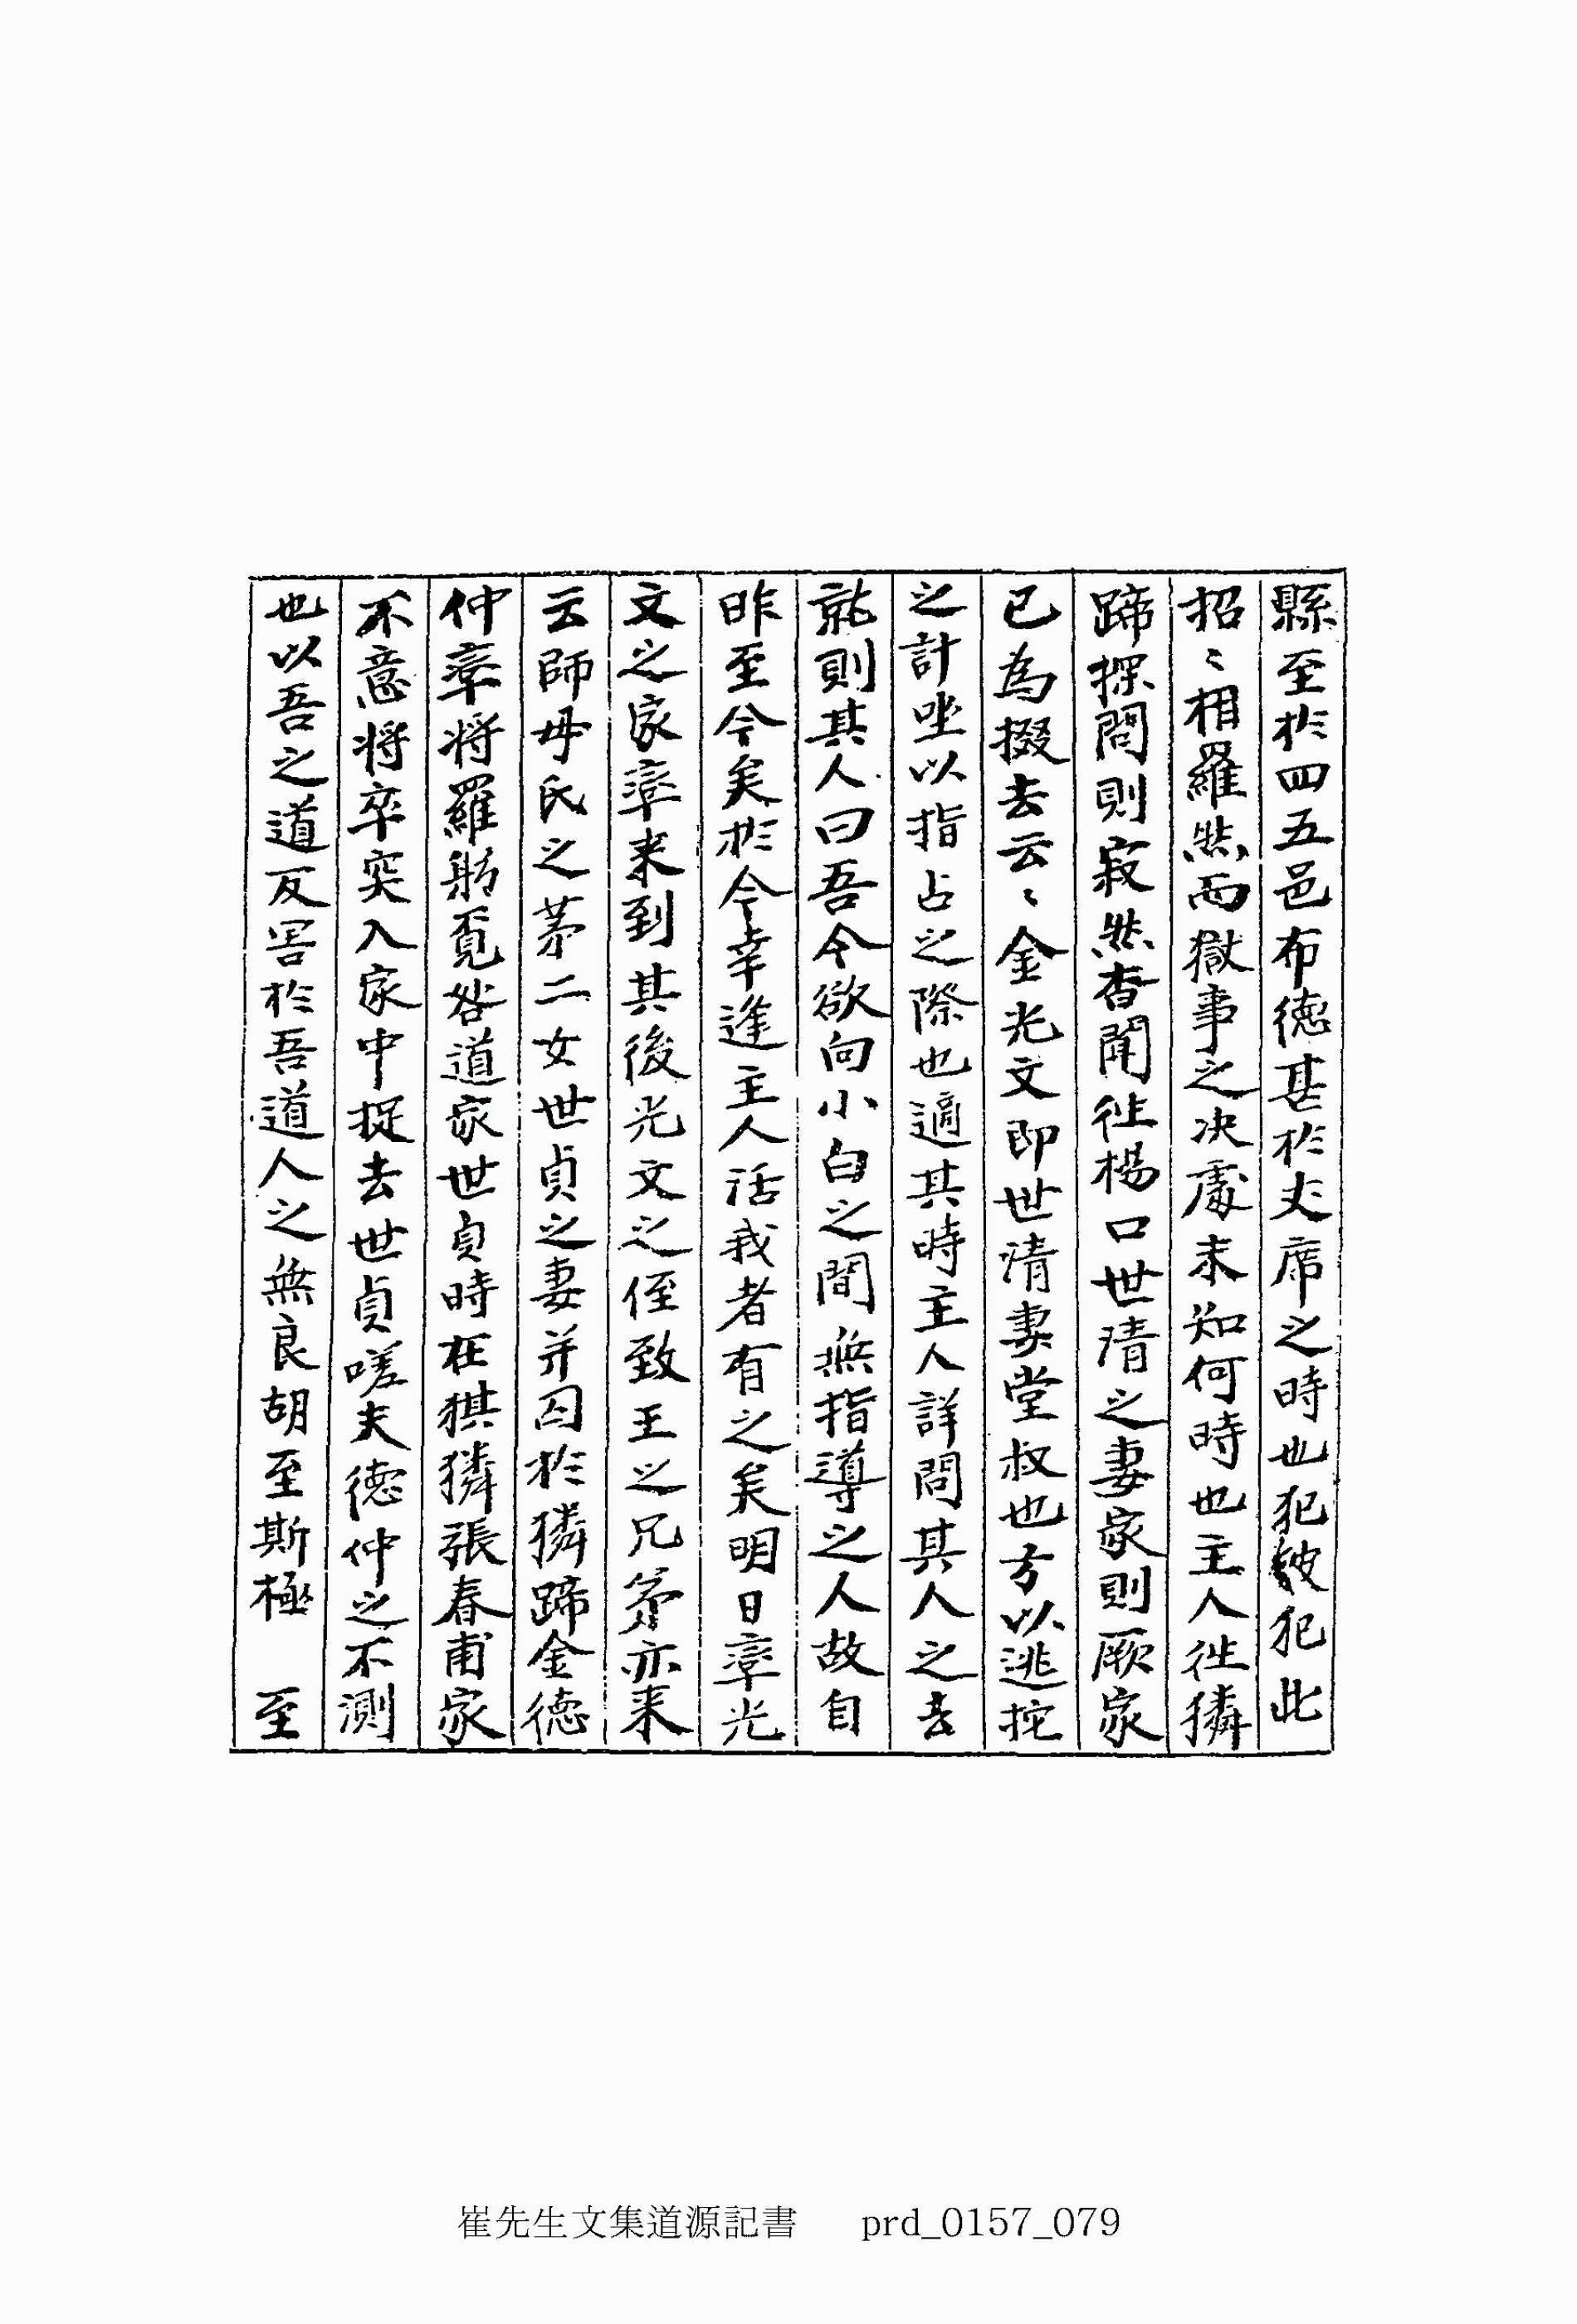 縣至於四五邑布德甚於丈席之時也犯彼犯此
招〻相羅然而獄事之决處未知何時也主人徃獜
蹄探問則寂然杳聞徃楊口世清之妻家則厥家
已為掇去云〻金光文即世清妻堂叔也方以逃挖
之計坐以指占之際也適其時主人詳問其人之去
就則其人曰吾今欲向小白之間無指導之人故自
昨至今矣於今幸逢主人活我者有之矣明日率光
文之家率来到其後光文之侄致王之兄弟亦来
云師母氏之茅二女世貞之妻并囚於獜蹄金德
仲率将羅躬覓咎道家世貞時在猉獜張春甫家
不意将卒突入家中捉去世貞嗟夫德仲之不測
也以吾之道反害於吾道人之無良胡至斯極　至
崔先生文集道源記書　prd_0157_079